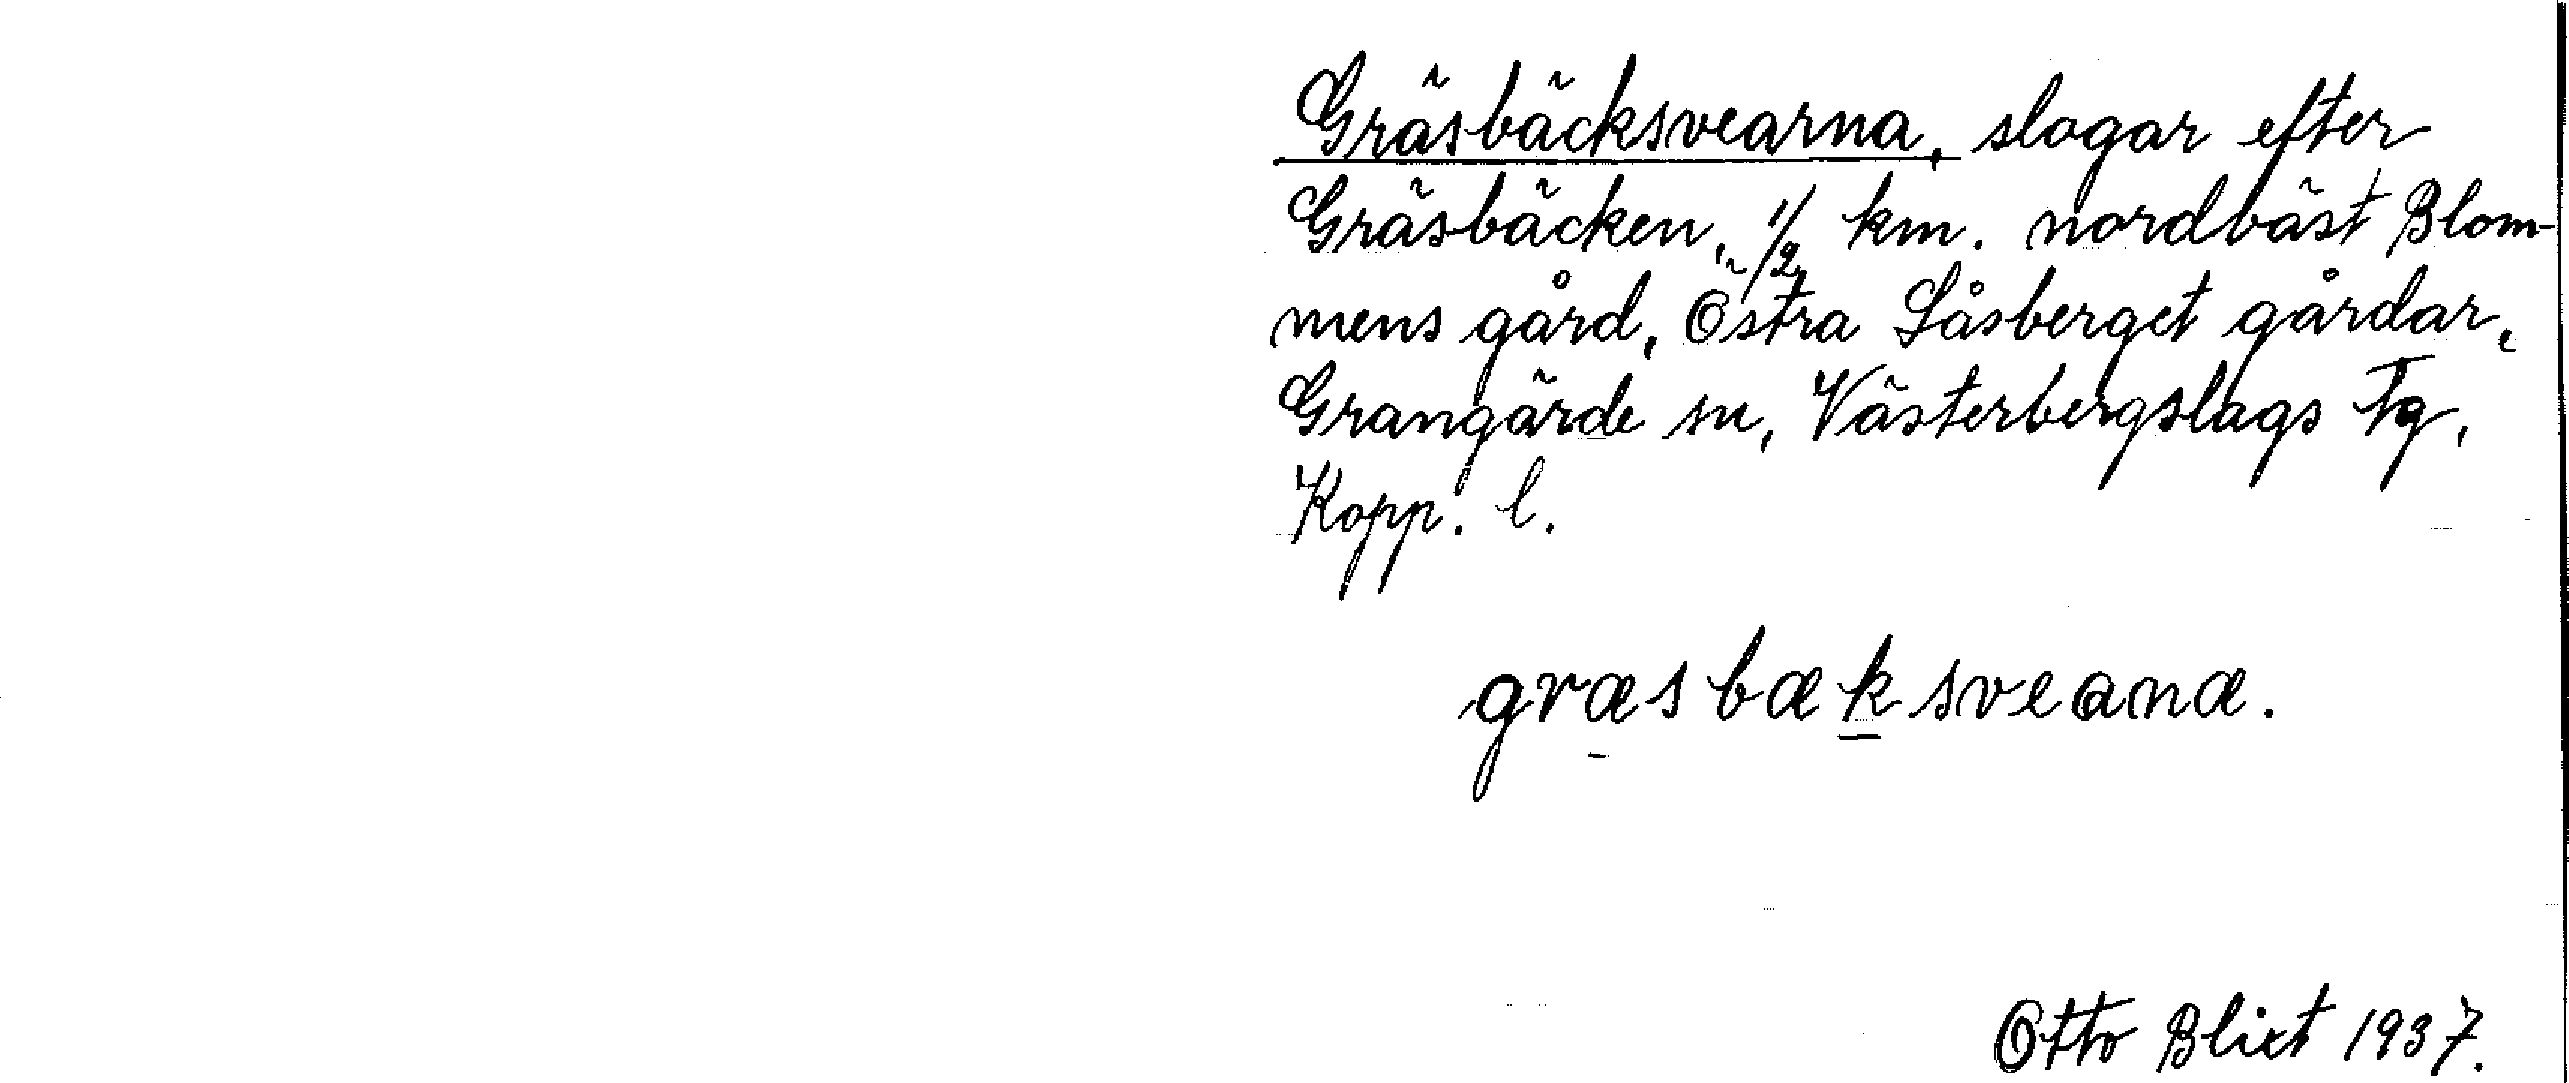 Gräsbäcksvearna, slogar efter
Gräsbäcken, 1/2 km. nordväst Blom-
mens gård, Östra Låsberget gårdar,
Grangärde sn, Västerbergslags tg,
Kopp. l.
græsbæksveanæ.
Otto Blixt 1937.